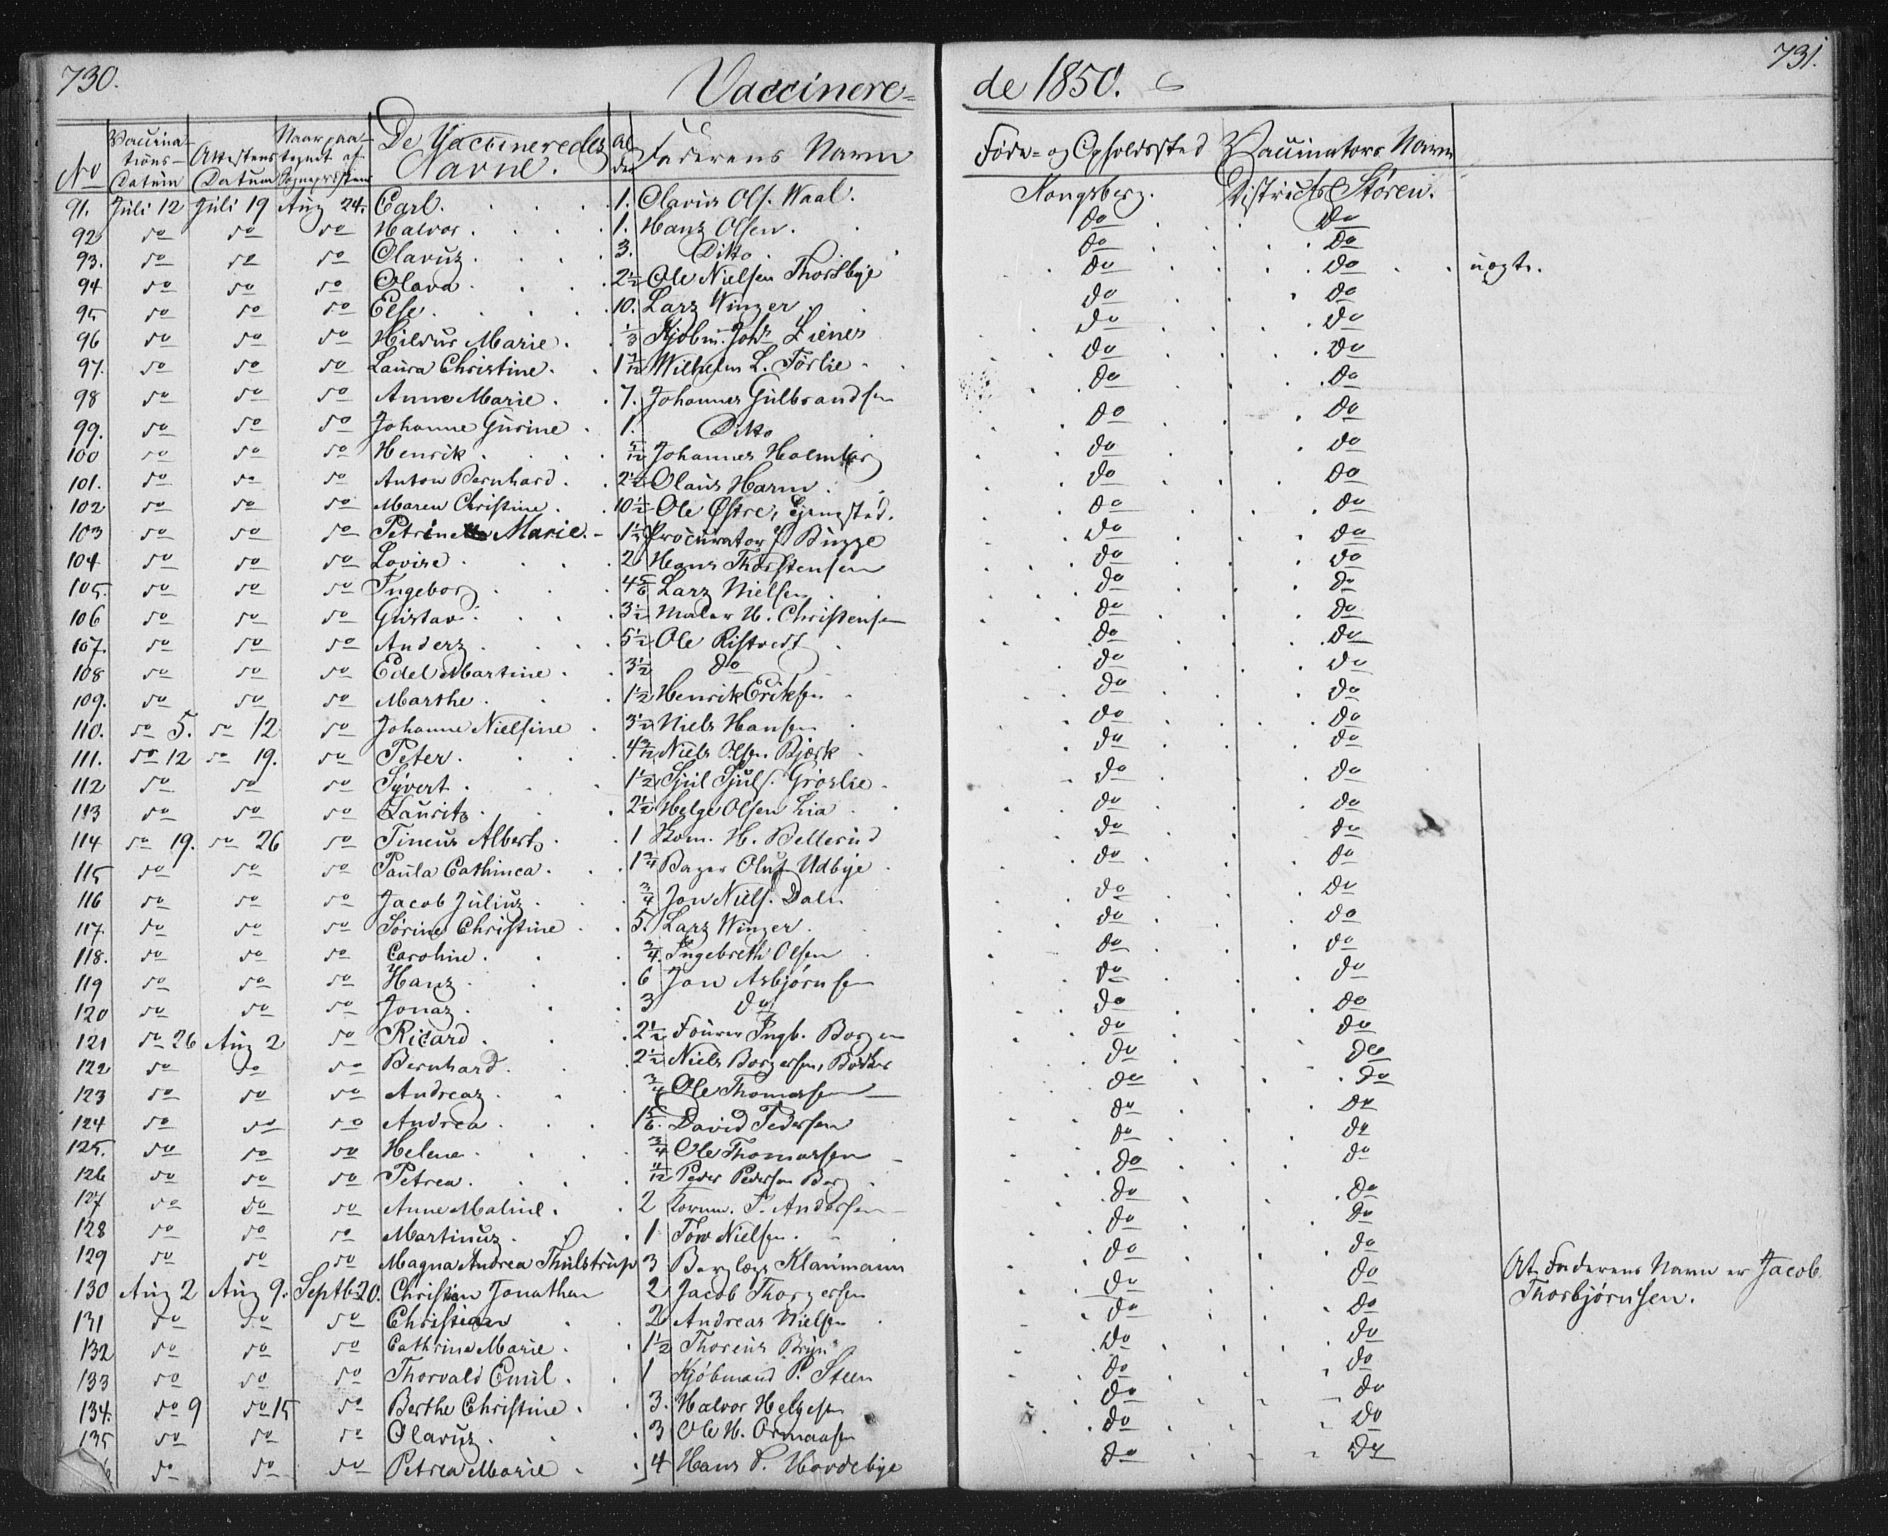 730. Vaccinere- de 1850. 731.
No Vaccinations-Datum Attestens Datum Naar paategnet af Sognepræsten De Vaccineredes Navne. Alder Faderens Navn Føde- og Opholdssted Vaccinators Navn
91. Juli 12 Juli 19 Aug 24. Carl. 1. Olavus Ols. Waal. Kongsberg. Districtsl. Støren.
92 do do do Halvor 1. Hans Olsen. do do
93. do do do Olavus 3. Ditto do do
94 do do do Olava 2½ Ole Nielsen Thorsbye do do uægte.
95 do do do Else 10. Lars Winger do do
96 do do do Marie 1/3 Kjøbm. Joh. Lienes do do
97. do do do Laura Christine. 1 Wilhelm L. Førlie do do
98 do do do Anne Marie 7. Johannes Gulbrandsen do do
99. do do do Johanne Gurine 1. Ditto do do
100 do do do Henrik 5/12 Johannes Holmberg do do
101. do do do Anton Bernhard 2½ Olaus Harm. do do
102 do do do Maren Christine 10½ Ole Østre, do do
103 do do do Petrine Marie. 1½ Procurator J Bugge do do
104 do do do Lovise 2 Hans Thorstensen do do
105. do do do Ingeborg 4 5/6 Lars Nielsen do do
106 do do do Gustav 3½ Maler H. Christensen do do
107. do do do Anders 5½ Ole Ristvedt do do
108 do do do Edel Martine 3½ do do do
109. do do do Marthe 1½ Henrik Eriksen do do
110. do 5. do 12 do Johanne Nielsine 3½ Niels Hansen do do
111. do 12 do 19. do Peter 4 Niels Olsen Bjerk do do
112 do do do Syvert 1½ Gjul Gjuls. Grøslie do do
113 do do do Lauritz 2½ Helge Olsen Lia do do
114 do 19. do 26 do Tineus Albert 1 H. Bellerud do do
115 do do do Paula Cathinca 1¾ Bager Oluf Udbye do do
116 do do do Jacob Julius ¾ Jon Niels. Dalen do do
117. do do do Sørine Christine 5. Lars Winger do do
118. do do do Caroline ¾ Ingebreth Olsen do do
119 do do do Hans 6 Jon Asbjørnsen do do
120 do do do Jonas 3 do do do
121 do 26 Aug 2 do Ricard 2½ Fourer Ingb. Borgen do do
122 do do do Bernhard 2½ Niels Borgersen, do do
123 do do do Andreas ¾ Ole Thomassen do do
124 do do do Andrea 1 5/6 David Pedersen do do
125. do do do Helene ¾ Ole Thomassen do do
126 do do do Petrea Peder Pedersen Berg do do
127 do do do Anne Maline. 2 Andersen do do
128 do do do Martinus 1 Tøw Nielsen do do
129 do do do Magna Andrea Thulstrup 3 Berglæge Klanmann do do
130 Aug 2 Aug 9. Septb 20. Christian Jonathan 2 Jacob Thorgersen do do At Faderens Navn er Jacob Thorbjørnsen.
131 do do do Christian 2 Andreas Nielsen do do
132 do do do Cathrine Marie 1½ Thorens Bryn do do
133 do do do Thorvald Emil 1 Kjøbmand P. Steen do do
134. do 9 do 15 do Berthe Christine 3. Halvor Helgesen do do
135 do do do Olavus 3 Ole H. Ormaasen do do
do do do Petrea Marie 4 Hans P. Hovdebye do do